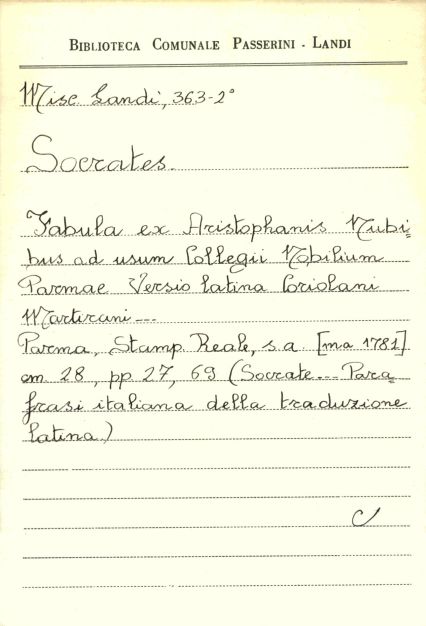 BIBLIOTECA COMUNALE PASSERINI - LANDI
Misc Landi, 363-2°
Socrates.
Fabula ex Aristophanis Nubi=
bus ad usum Collegii Nobilium
Parmae Versio latina Coriolani
Martirani---
Parma, Stamp. Reale, s.a [ma 1781]
cm 28, pp. 27, 69 (Socrate... Para=
frasi italiana della traduzione
latina)